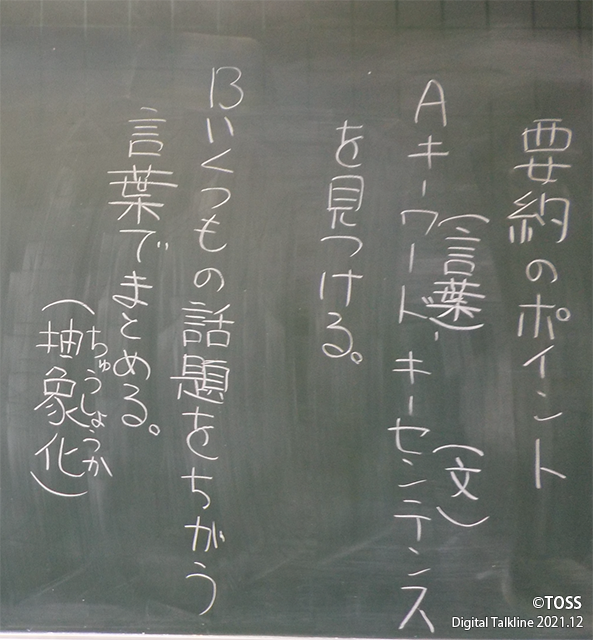 要約のポイント
A キーワード、キーセンテンス
（言葉）（文）
を見つける。
B いくつもの話題をちがう
言葉でまとめる。
（抽象化）
ちゅうしょうか
©TOSS
Digital Talkline 2021.12